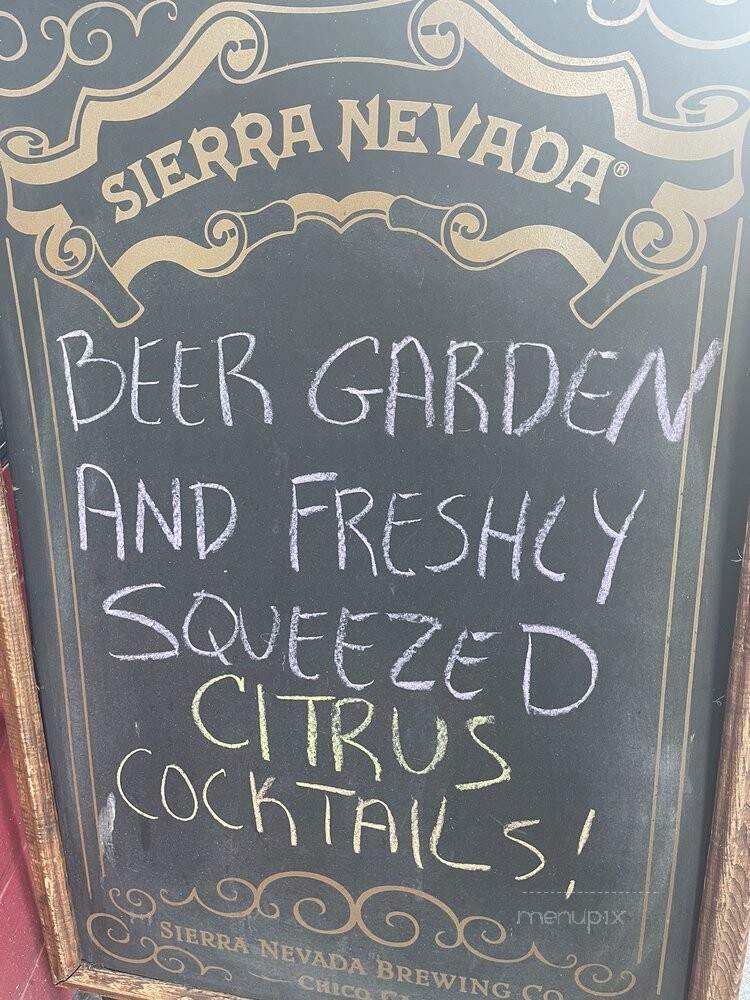 SIERRA NEVADA®
BEER GARDEN
AND FRESHLY
SQUEEZED
CITRUS
COCKTAILS!
menupix
SIERRA NEVADA BREWING CO
CHICO